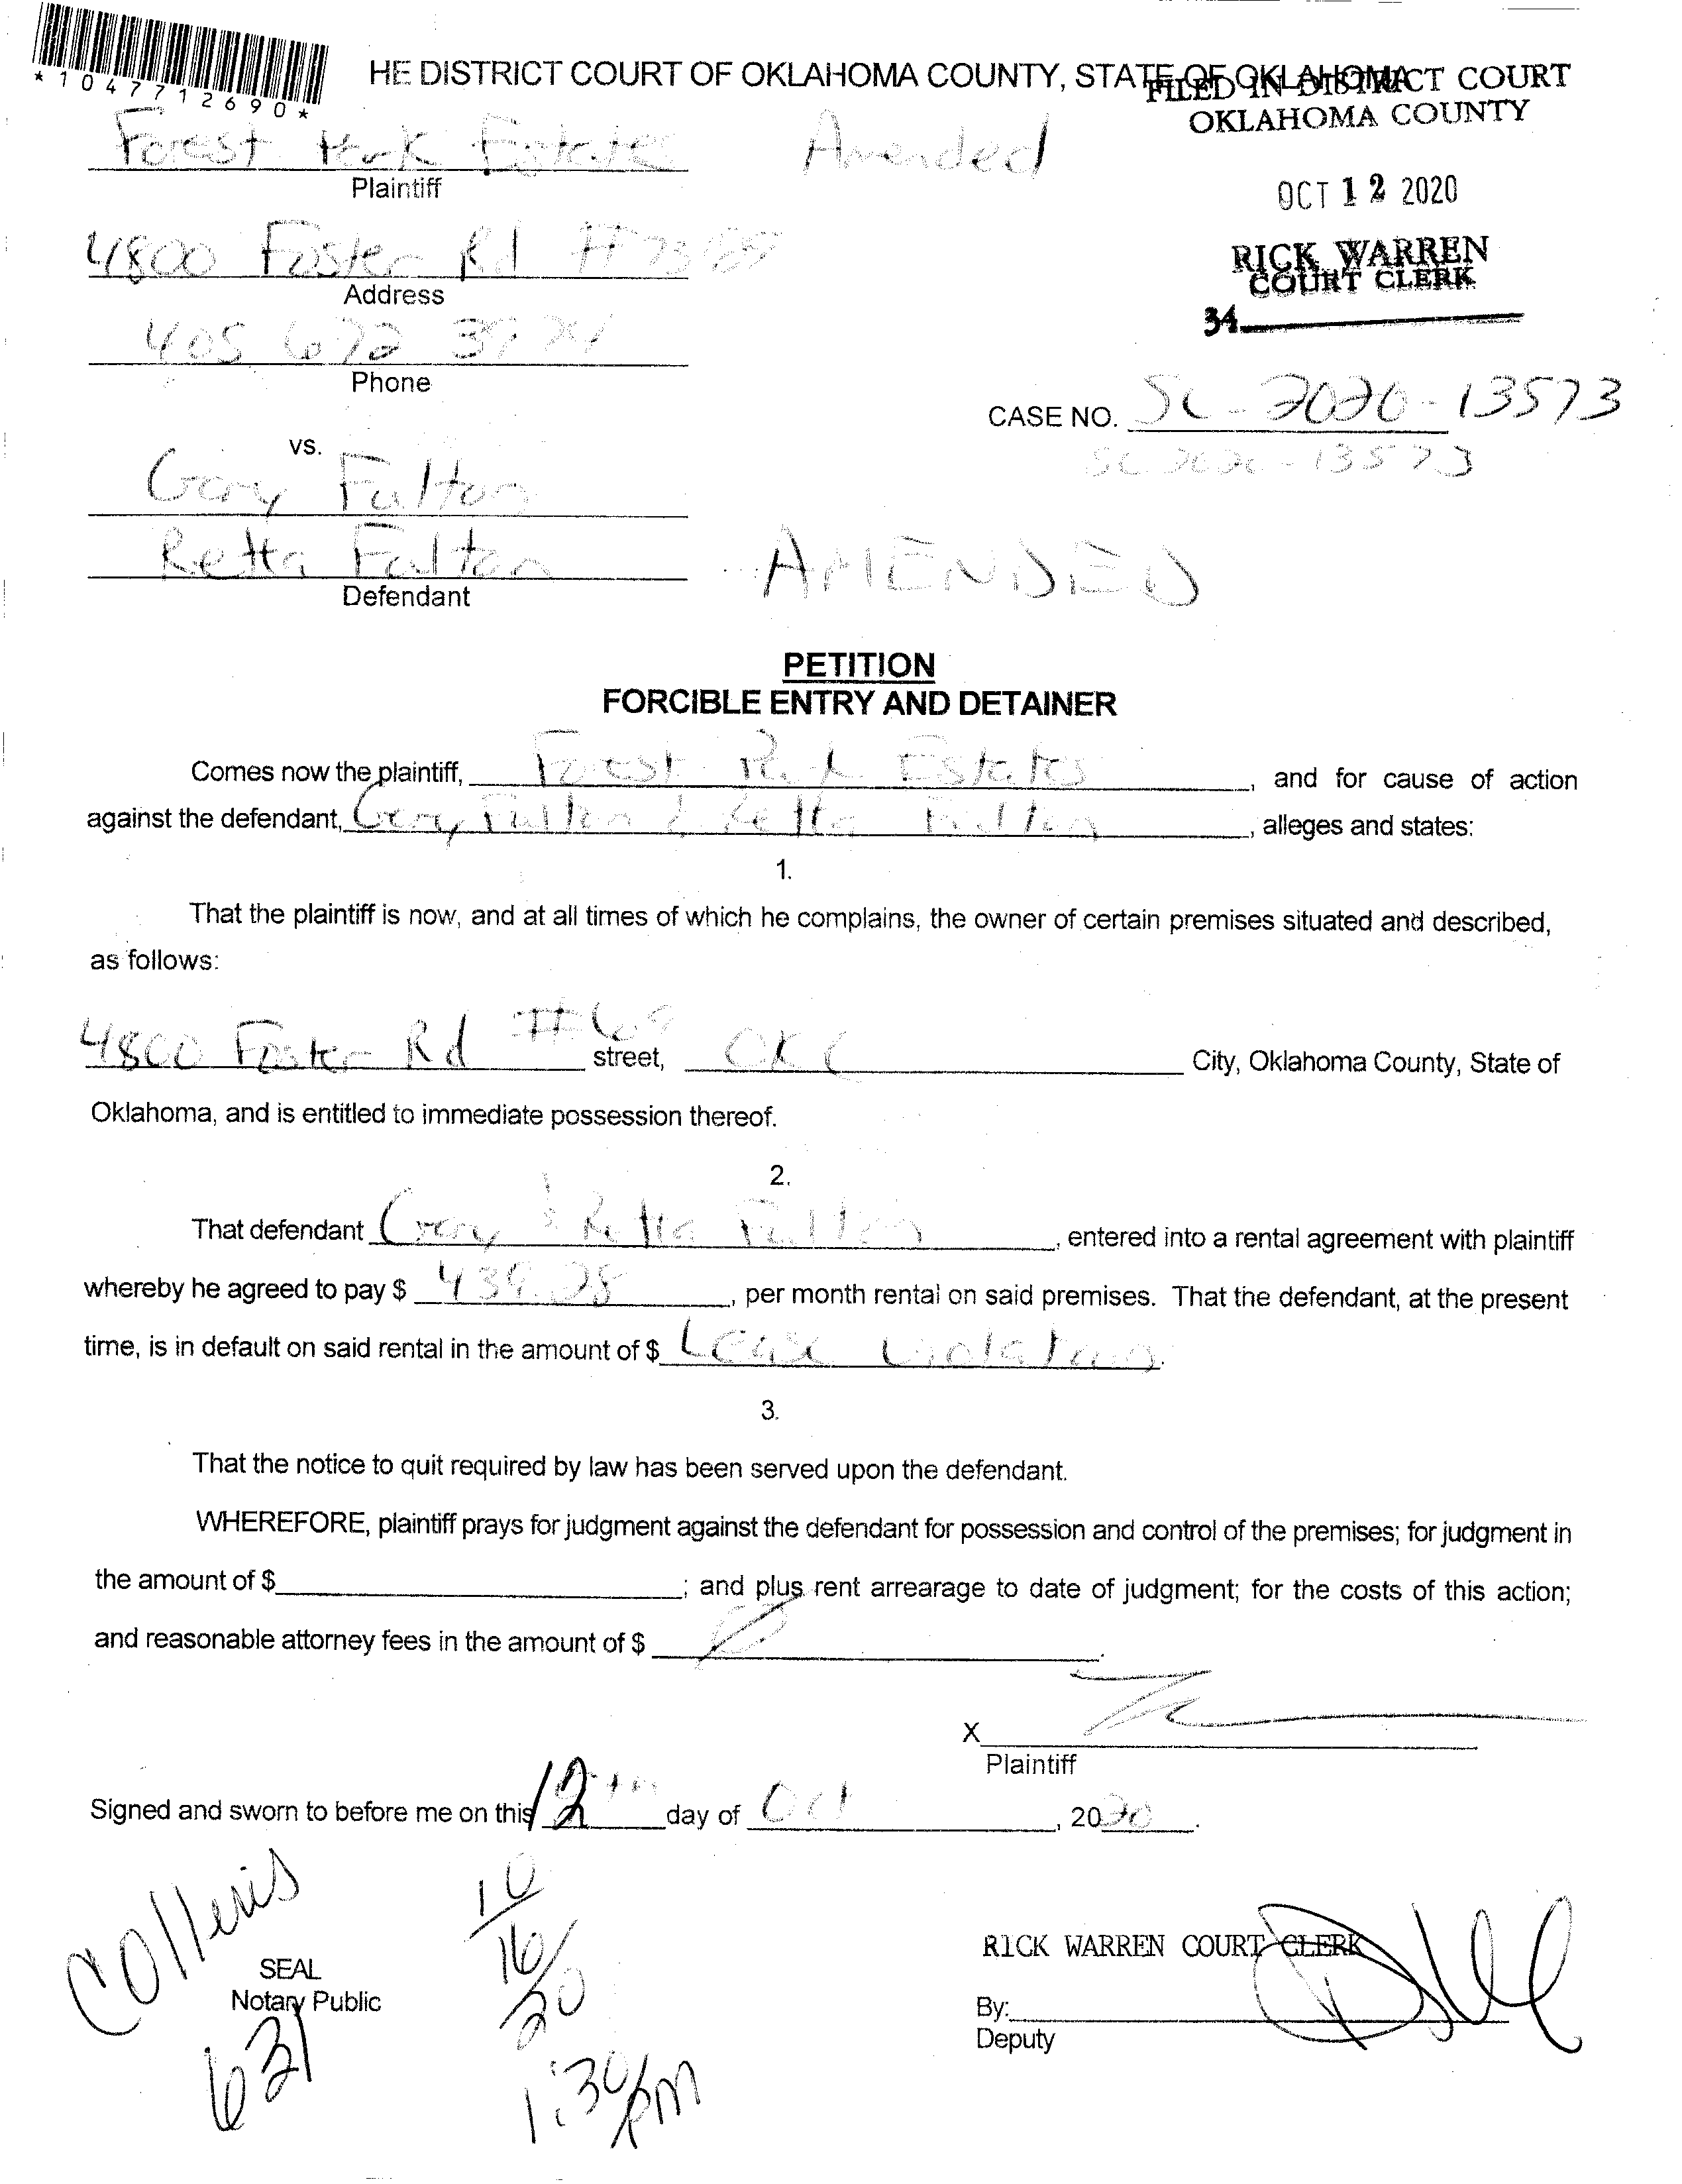 *1047712690*
HE DISTRICT COURT OF OKLAHOMA COUNTY, STATE OF OKLAHOMA
FILED IN DISTRICT COURT
OKLAHOMA COUNTY
Forest Park Estates
Amended
Plaintiff
OCT 12 2020
4800 Foster Rd
RICK WARREN
COURT CLERK
Address
34
405 672
Phone
CASE NO. SC-2020-13573
SC 2020-13573
vs.
Gary Fulton
Retta Fulton
AMENDED
Defendant
PETITION
FORCIBLE ENTRY AND DETAINER
Comes now the plaintiff, Forest Park Estates, and for cause of action
against the defendant, Gary Fulton & Retta Fulton, alleges and states:
1.
That the plaintiff is now, and at all times of which he complains, the owner of certain premises situated and described,
as follows:
4800 Foster Rd #69 street, OKC City, Oklahoma County, State of
Oklahoma, and is entitled to immediate possession thereof.
2.
That defendant Gary & Retta Fulton, entered into a rental agreement with plaintiff
whereby he agreed to pay $ 439.28, per month rental on said premises. That the defendant, at the present
time, is in default on said rental in the amount of $ Lease Violation.
3.
That the notice to quit required by law has been served upon the defendant.
WHEREFORE, plaintiff prays for judgment against the defendant for possession and control of the premises; for judgment in
the amount of $; and plus rent arrearage to date of judgment; for the costs of this action;
and reasonable attorney fees in the amount of $ 0.
X
Plaintiff
Signed and sworn to before me on this 12th day of Oct, 2020.
Collins
10/16/20
SEAL
Notary Public
631
1:30pm
RICK WARREN COURT CLERK
By:
Deputy